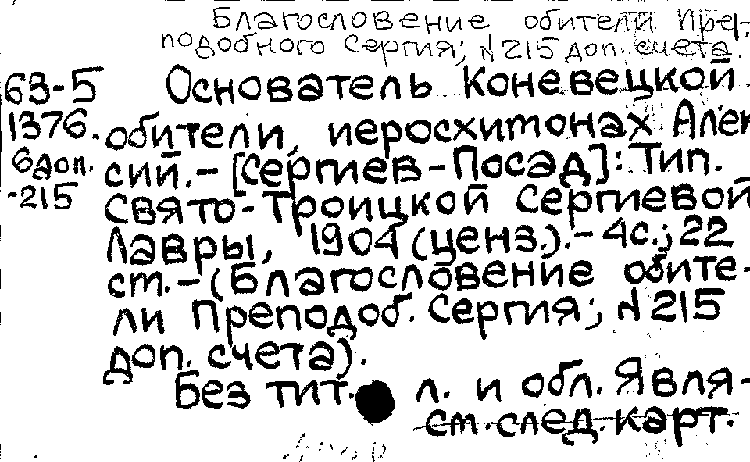 Благословение обители Пре-
подобного Сергия; N 215 доп. счета.
63-5 Основатель Коневецкой
1376. обители, иеросхимонах Алек
6 доп. сий. – [Сергиев-Посад]: Тип.
-215 Свято-Троицкой Сергиевой
Лавры, 1904 (ценз.). – 4с.; 22
ст. – (Благословение обите-
ли Преподоб. Сергия; N 215
доп. счета).
Без тит. л. и обл. Явля-
см. след. карт.